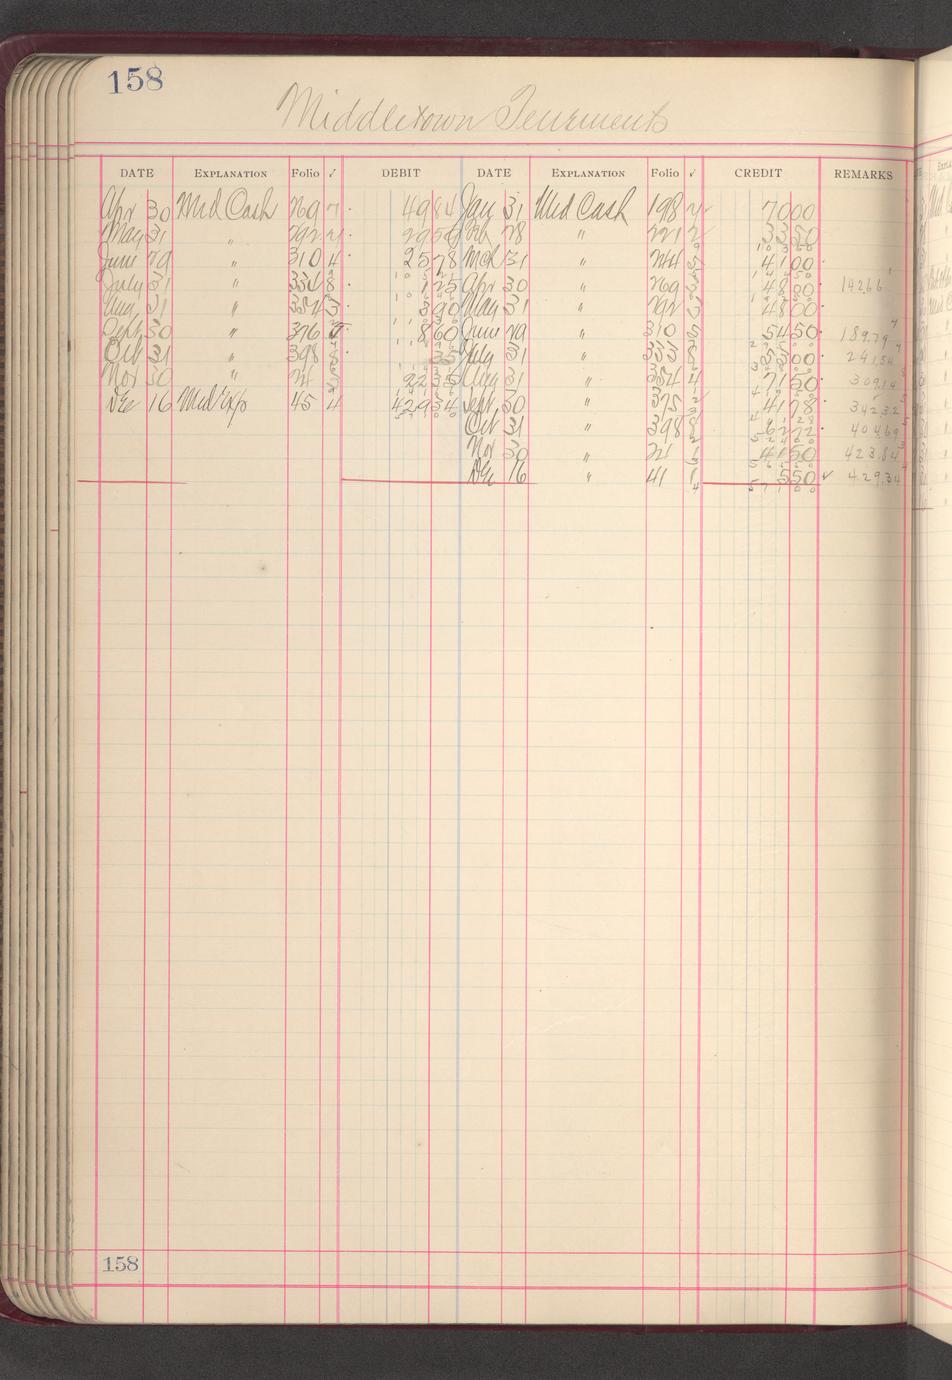 158
Middletown Tenements
DATE EXPLANATION Folio ✓ DEBIT DATE EXPLANATION Folio ✓ CREDIT REMARKS
Apr 30 Mid Cash 269 49 84 Jan 31 Mid Cash 198 70 00
May 31 " 292 29 58 Feb 28 " 221 33 50
June 29 " 310 4 25 78 Mch 31 " 244 41 00
July 31 " 334 8 1 25 Apr 30 " 269 48 80 142 66
Aug 31 " 354 3 3 90 May 31 " 292 48 00
Sept 30 " 376 8 60 June 29 " 310 54 50 189.79
Oct 31 " 398 35 July 31 " 333 53 00 241.54
Nov 30 " 21 22 35 Aug 31 " 354 4 71 50 309.14
Dec 16 Mid Exp 45 4 429 34 Sept 30 " 375 41 78 342.32
Oct 31 " 398 62 72 404.69
Nov 30 " 21 41 50 423.84
Dec 16 " 41 5 50 ✓ 429.34
158